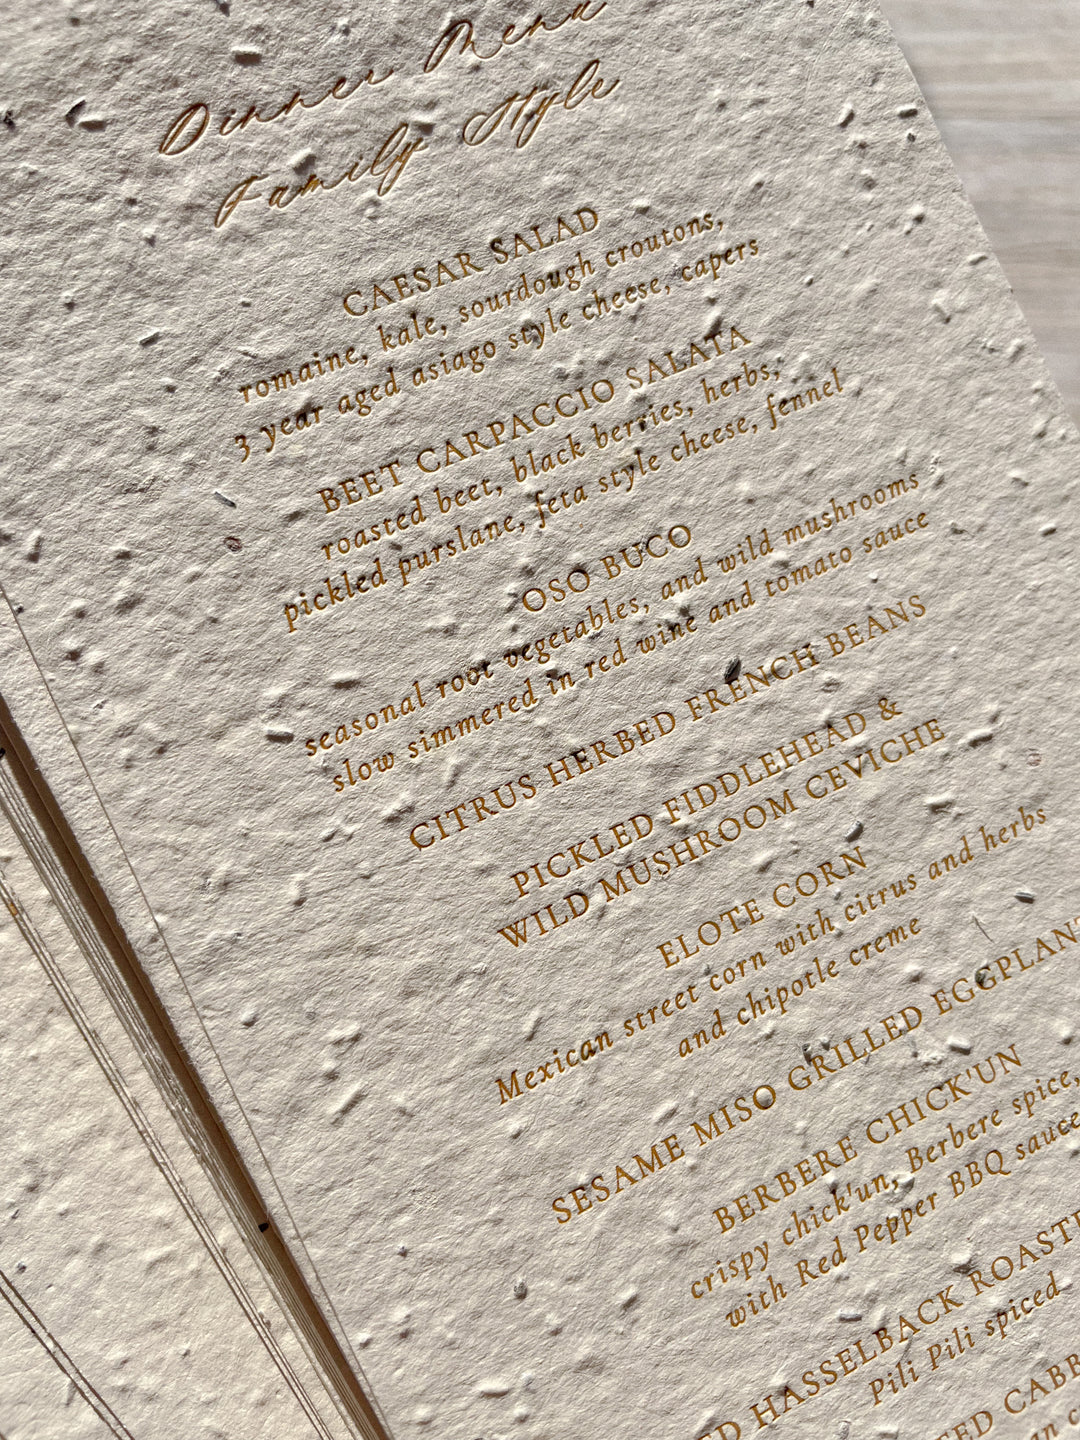 Dinner Menu
Family Style
CAESAR SALAD
romaine, kale, sourdough croutons,
3 year aged asiago style cheese, capers
BEET CARPACCIO SALATA
roasted beet, black berries, herbs,
pickled purslane, feta style cheese, fennel
OSO BUCO
seasonal root vegetables, and wild mushrooms
slow simmered in red wine and tomato sauce
CITRUS HERBED FRENCH BEANS
PICKLED FIDDLEHEAD &
WILD MUSHROOM CEVICHE
ELOTE CORN
Mexican street corn with citrus and herbs
and chipotle creme
SESAME MISO GRILLED EGGPLANT
BERBERE CHICK'UN
crispy chick'un, Berbere spice,
with Red Pepper BBQ sauce
HASSELBACK
Pili Pili spiced